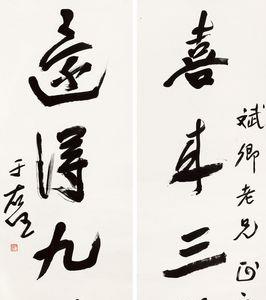 斌卿老兄正
喜来三
遠得九
于右任